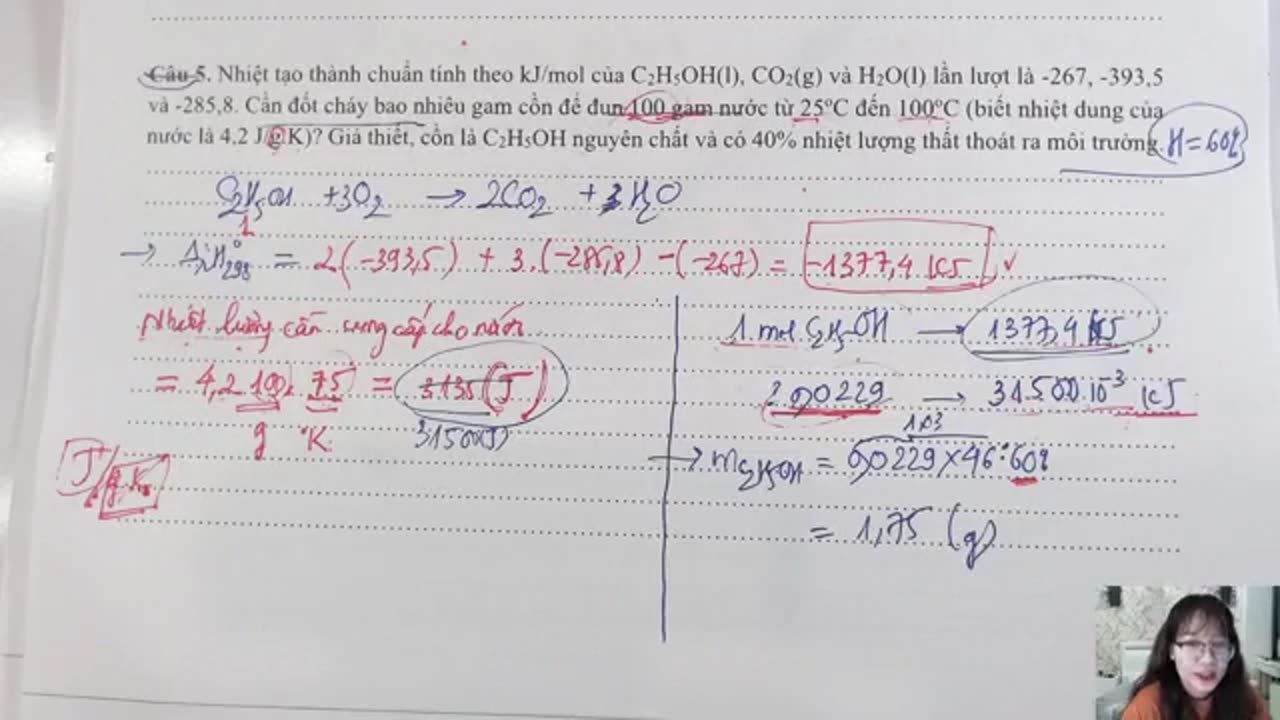 Câu 5. Nhiệt tạo thành chuẩn tính theo kJ/mol của C₂H₅OH(l), CO₂(g) và H₂O(l) lần lượt là -267, -393,5
và -285,8. Cần đốt cháy bao nhiêu gam cồn để đun 100 gam nước từ 25°C đến 100°C (biết nhiệt dung của
nước là 4,2 J/g.K)? Giả thiết, cồn là C₂H₅OH nguyên chất và có 40% nhiệt lượng thất thoát ra môi trường. H = 60%
C₂H₅OH + 3O₂ → 2CO₂ + 3H₂O
1
→ ΔrH°298 = 2(-393,5) + 3.(-285,8) - (-267) = -1377,4 kJ
Nhiệt lượng cần cung cấp cho nước
= 4,2.100.75 = 3135 (J)
g K 31500(J)
J/g.K
1 mol C₂H₅OH → 1377,4 kJ
0,0229 → 31500.10⁻³ kJ
1,03
→ mC₂H₅OH = 0,0229 × 46 : 60%
= 1,75 (g)